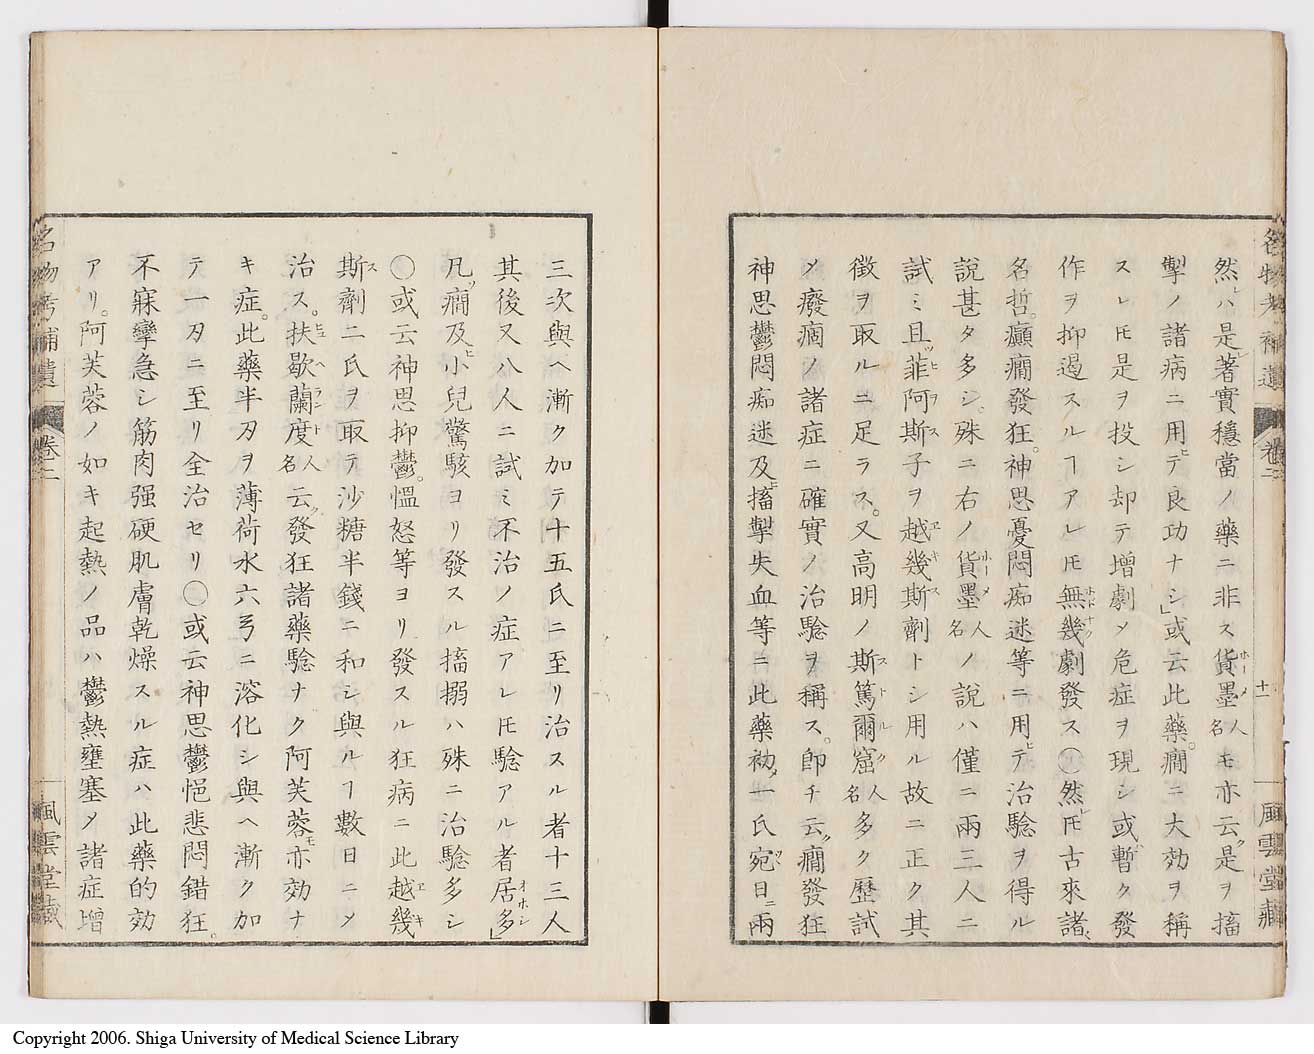 名物考補遺 卷二 十一 風雲堂藏
然レハ是レ著實穩當ノ藥ニ非ス貨墨人名モ亦云ク是ヲ搐
掣ノ諸病ニ用ヒテ良功ナシ」或云此藥。癇ニ大効ヲ稱
スレ𪜈是ヲ投シ却テ增劇メ危症ヲ現シ或ハ暫ク發
作ヲ抑遏スルヿアレ𪜈無幾劇發ス〇然レ𪜈古來諸
名哲。癲癇發狂。神思憂悶痴迷等ニ用ヒテ治驗ヲ得ル
說甚タ多シ。殊ニ右ノ貨墨人名ノ說ハ僅ニ兩三人ニ
試ミ且ツ菲阿斯子ヲ越幾斯劑トシ用ル故ニ正ク其
徵ヲ取ルニ足ラス。又高明ノ斯篤爾窟人名多ク歷試
メ癈痼ノ諸症ニ確實ノ治騐ヲ稱ス。即チ云ク癇發狂
神思鬱悶痴迷及ヒ搐掣失血等ニ此藥初メ一氏宛日ニ兩
三次與ヘ漸ク加テ十五氏ニ至リ治スル者十三人
其後又八人ニ試ミ不治ノ症アレ𪜈騐アル者居多」
凡ソ癇及ヒ小兒驚駭ヨリ發スル搐搦ハ殊ニ治騐多シ
〇或云神思抑鬱。慍怒等ヨリ發スル狂病ニ此越幾
斯劑二氏ヲ取テ沙糖半錢ニ和シ與ルヿ數日ニメ
治ス。扶歇蘭度人名云ク發狂諸藥騐ナク阿芙蓉モ亦効ナ
キ症。此藥半刄ヲ薄荷水六弓ニ溶化シ與ヘ漸ク加
テ一刄ニ至リ全治セリ〇或云神思鬱悒悲悶錯狂。
不寐攣急シ筋肉强硬肌膚乾燥スル症ハ此藥的効
アリ。阿芙蓉ノ如キ起熱ノ品ハ鬱熱壅塞メ諸症增
名物考補遺 卷二 風雲堂藏
Copyright 2006. Shiga University of Medical Science Library